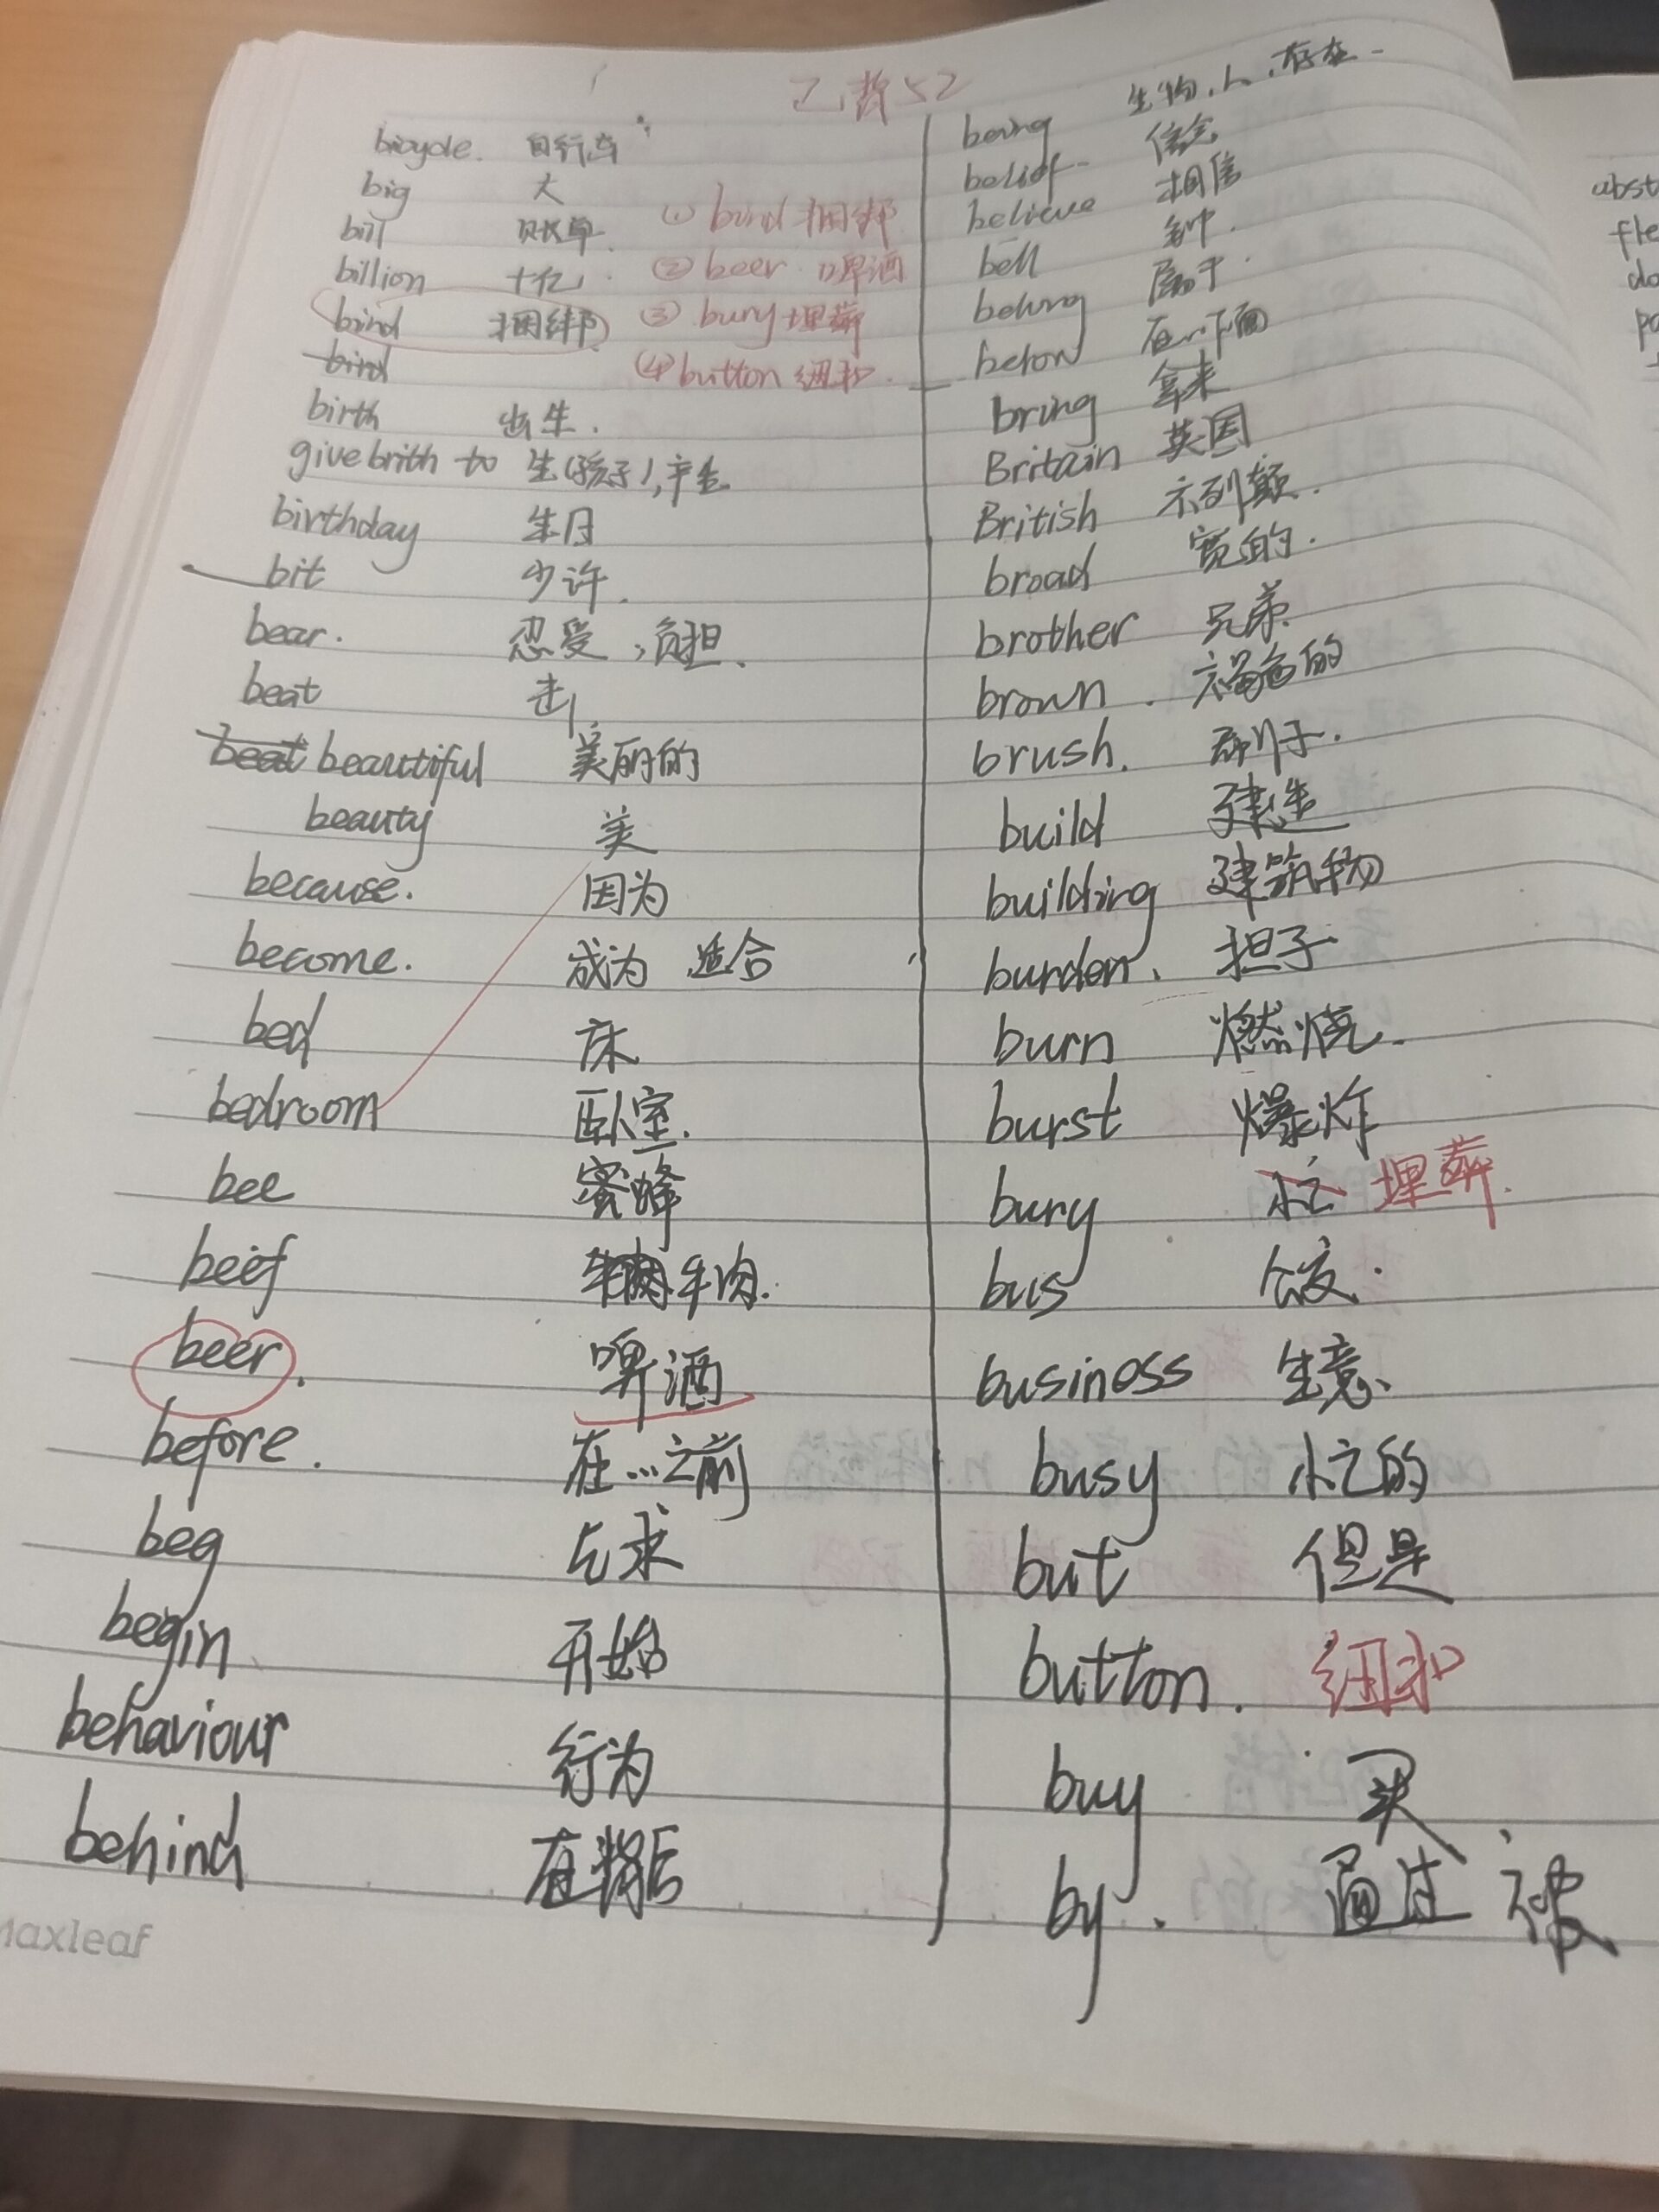 52
bicycle. 自行车
big 大
bill 账单
billion 十亿
bind 捆绑
bird
birth 出生.
give brith to 生(孩子),产生
birthday 生日
bit 少许.
bear. 忍受,负担、
beat 击
beat beautiful 美丽的
beauty 美
because. 因为
become. 成为 适合
bed 床
bedroom 卧室.
bee 蜜蜂
beef 牛肉.
beer. 啤酒
before. 在...之前
beg 乞求
begin 开始
behaviour 行为
behind 在 后
① bind 捆绑
② beer 啤酒
③ bury 埋葬
④ button 纽扣.
being 生物.人.存在
belief 信念
believe 相信
bell 钟.
belong 属于.
below 在...下面
bring 拿来
Britain 英国
British 不列颠.
broad 宽的.
brother 兄弟.
brown. 褐色的
brush. 刷子.
build 建造
building 建筑物
burden. 担子
burn 燃烧.
burst 爆炸
bury 忙 埋葬.
bus
business 生意、
busy 忙的
but 但是
button. 纽扣
buy 买
by. 通过、被
Maxleaf
abst
fle
do